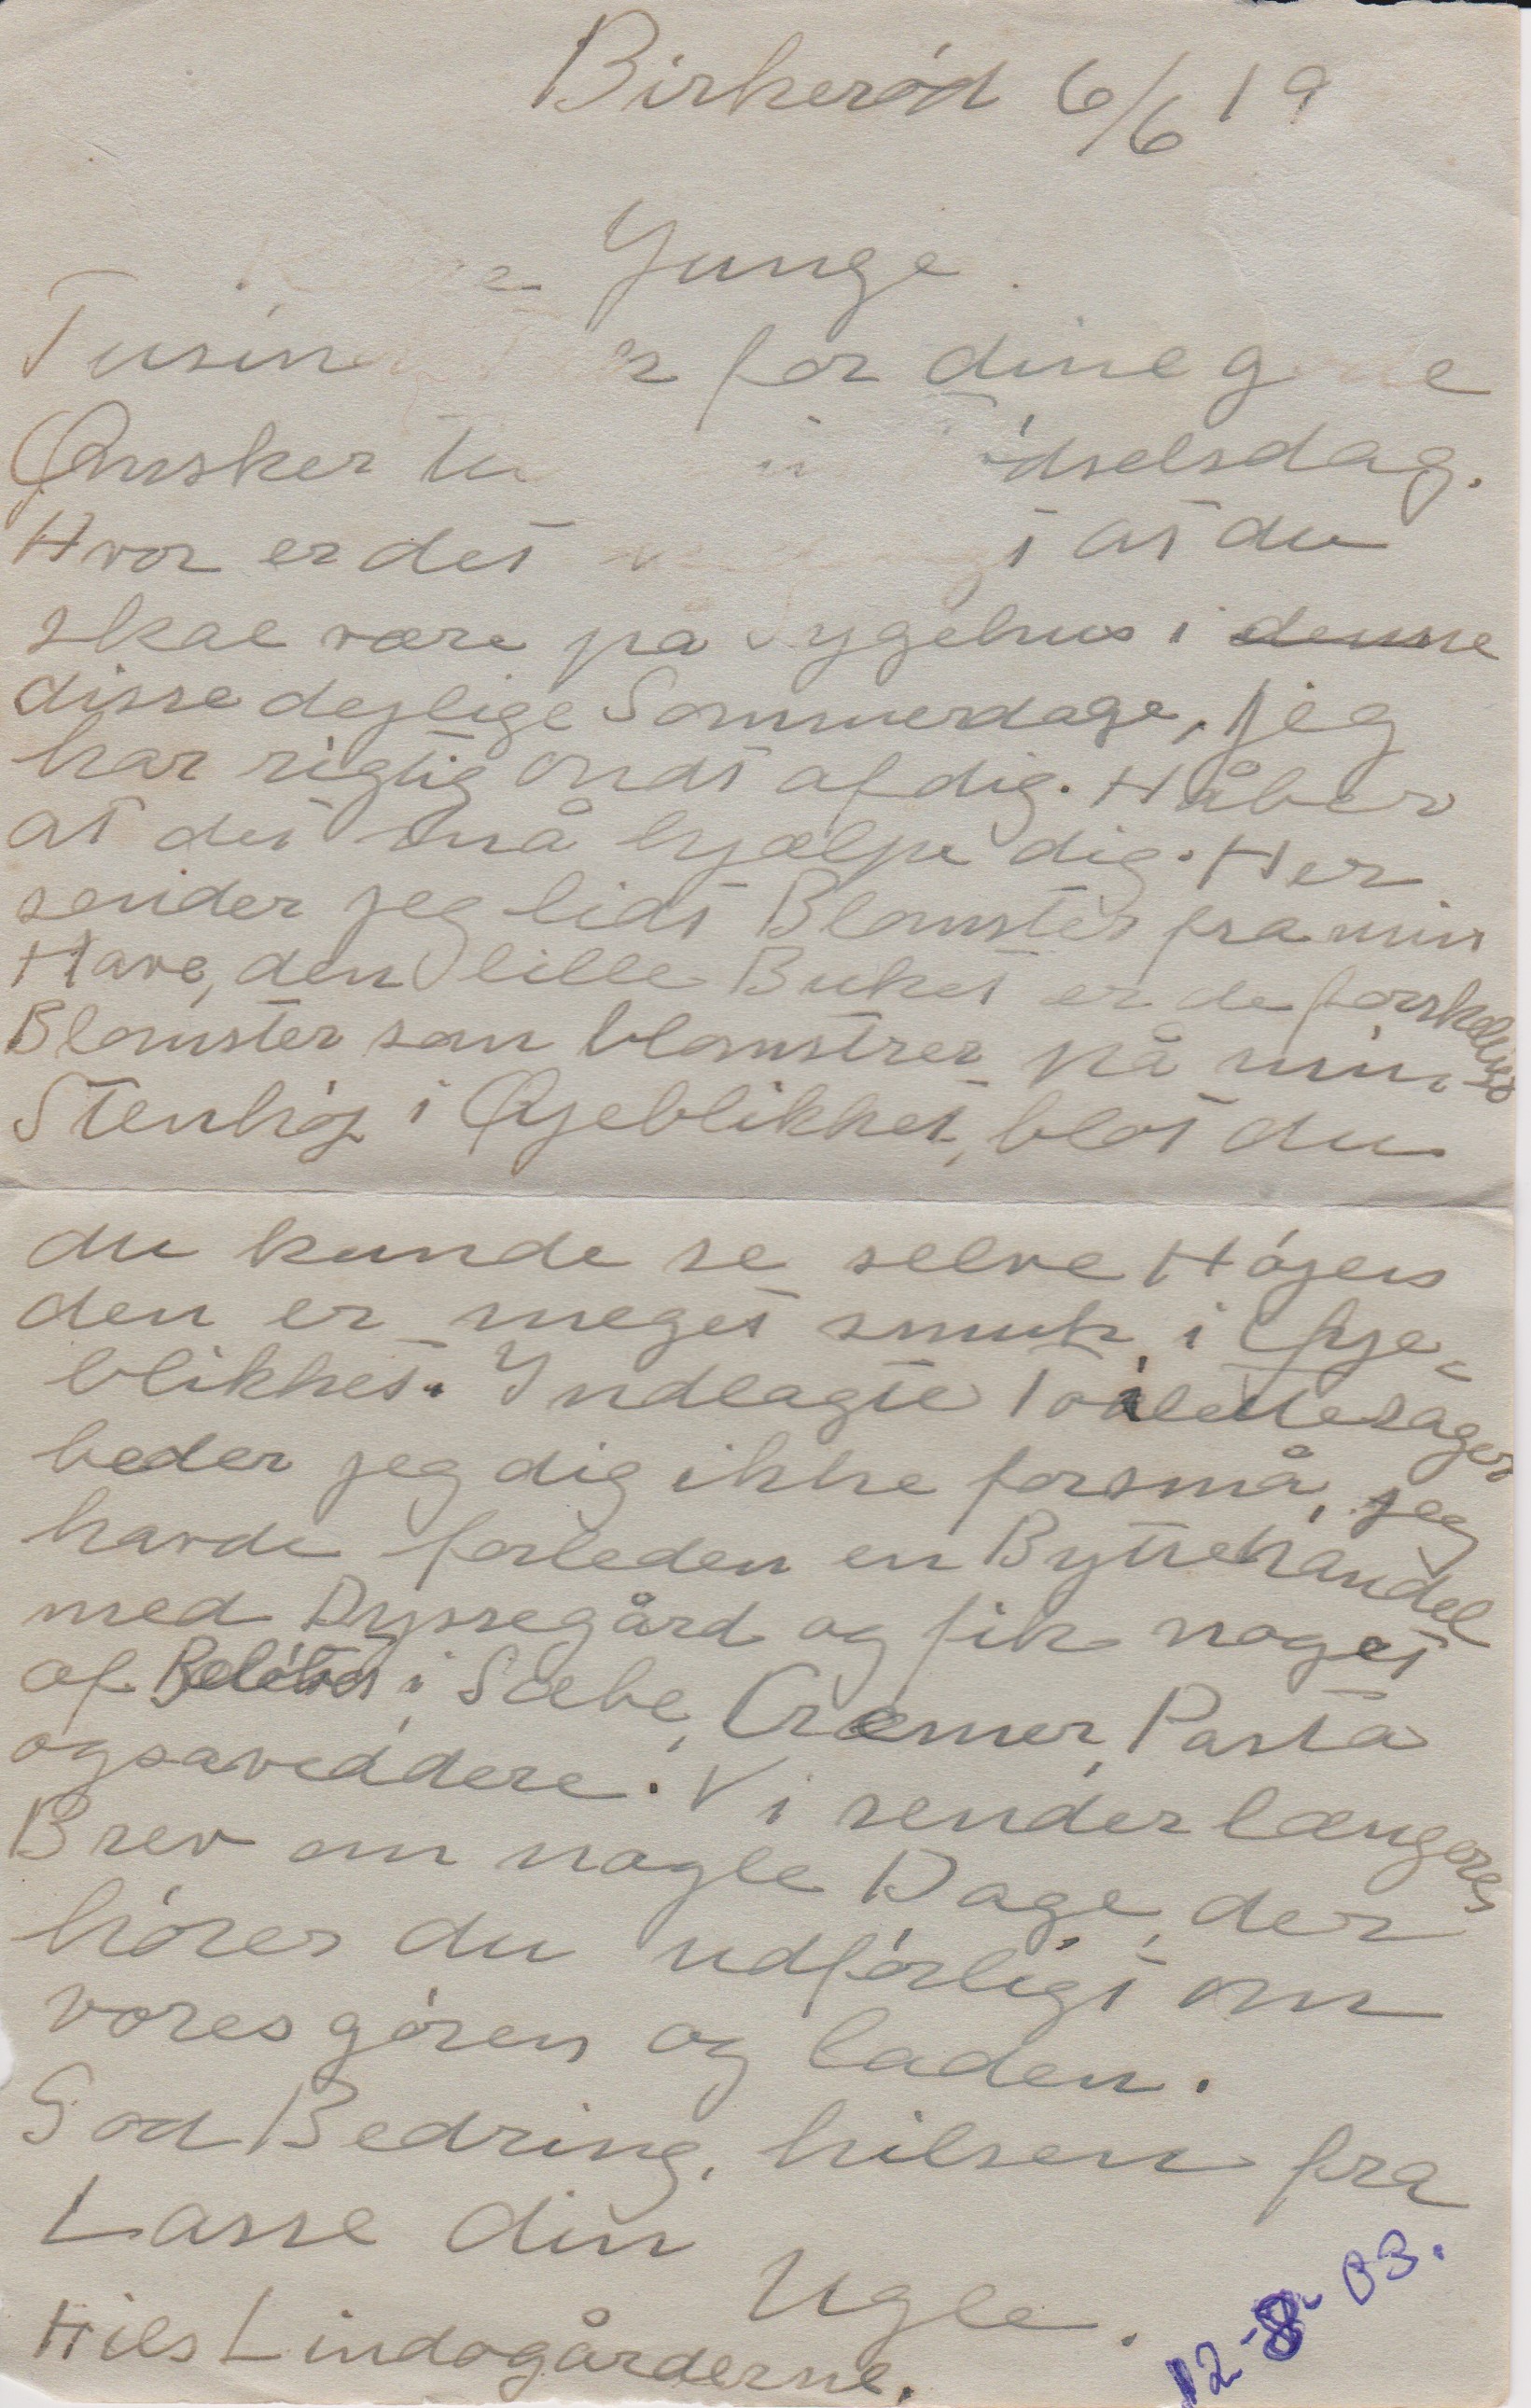 Birkerød 6/6 19
Junge.
for dine
Ønsker
Hvor er det at du
skal være på Sygehus i denne
disse dejlige Sommerdage, jeg
har rigtig ondt af dig. Håber
at det må hjælpe dig. Her
sender jeg lidt Blomster fra min
Have, den lille Buket er de forskellige
Blomster som blomstrer på min
Stenhøj i Øjeblikket, blot du
du kunde se selve Højen
den er meget smuk i Øje-
blikket. Indlagte Toiletsager
beder jeg dig ikke forsmå, jeg
havde forleden en Byttehandel
med Dyssegård og fik noget
af i Sæbe, Cremer, Pasta
ogsaviddere. Vi sender længere
Brev om nogle Dage, der
hører du udførligt om
vores gøren og laden.
God Bedring, hilsen fra
Lasse din
Ugle.
Hils Lindøgårderne.
12-8-03.